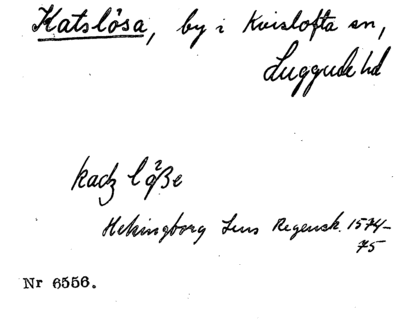 Katslösa, by i Kvislofta sn,
Luggude hd
kadz löße
Helsingborg Lens Regensk. 1574–
75
Nr 6556.